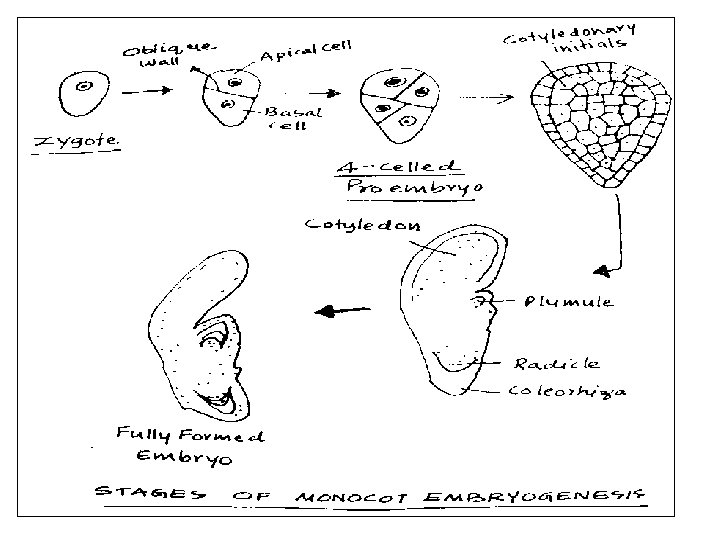 Oblique
wall
Apical cell
Cotyledonary
initials
Basal
cell
Zygote.
4-celled
Proembryo
Cotyledon
Plumule
Radicle
Coleorhiza
Fully Formed
Embryo
STAGES OF MONOCOT EMBRYOGENESIS